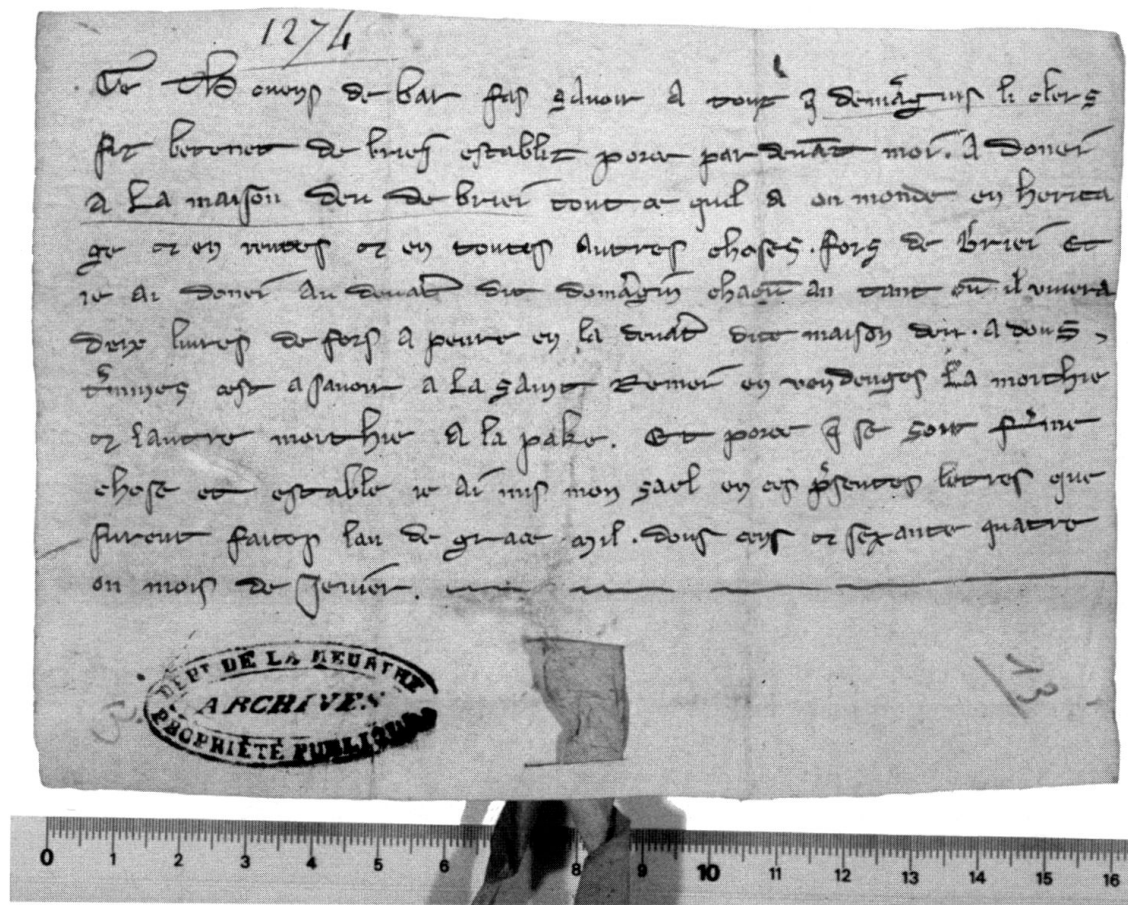 1274
Je Th. cuens de bar fas savoir a touz q̄ demāgins li clers
fiz betenet de brief establit porce par devāt moi. A donei
A La maison deu de briei tout ce quil a on monde en herita
ge ⁊ en rentes ⁊ en toutes Autres choses. fors de briei Et
ie Ai donei Au devāt dit domāgin chacū an tant cū il vivera
deix livres de fors A penre en la devāt dite maison deu. A dous
t̄mines cest asavoir a La saint Remei en vendenges La moithie
⁊ lautre moithie A la pake. Et porce q̄ se soit ferme
chose et estable ie Ai mis mon sael en ces p̄sentes letres que
furent faites lan de grace mil. dous cens ⁊ sexante quatre
on mois de Jenvier.
DEPT DE LA MEURTHE
ARCHIVES
PROPRIÉTÉ PUBLIQUE
13
0 1 2 3 4 5 6 7 8 9 10 11 12 13 14 15 16